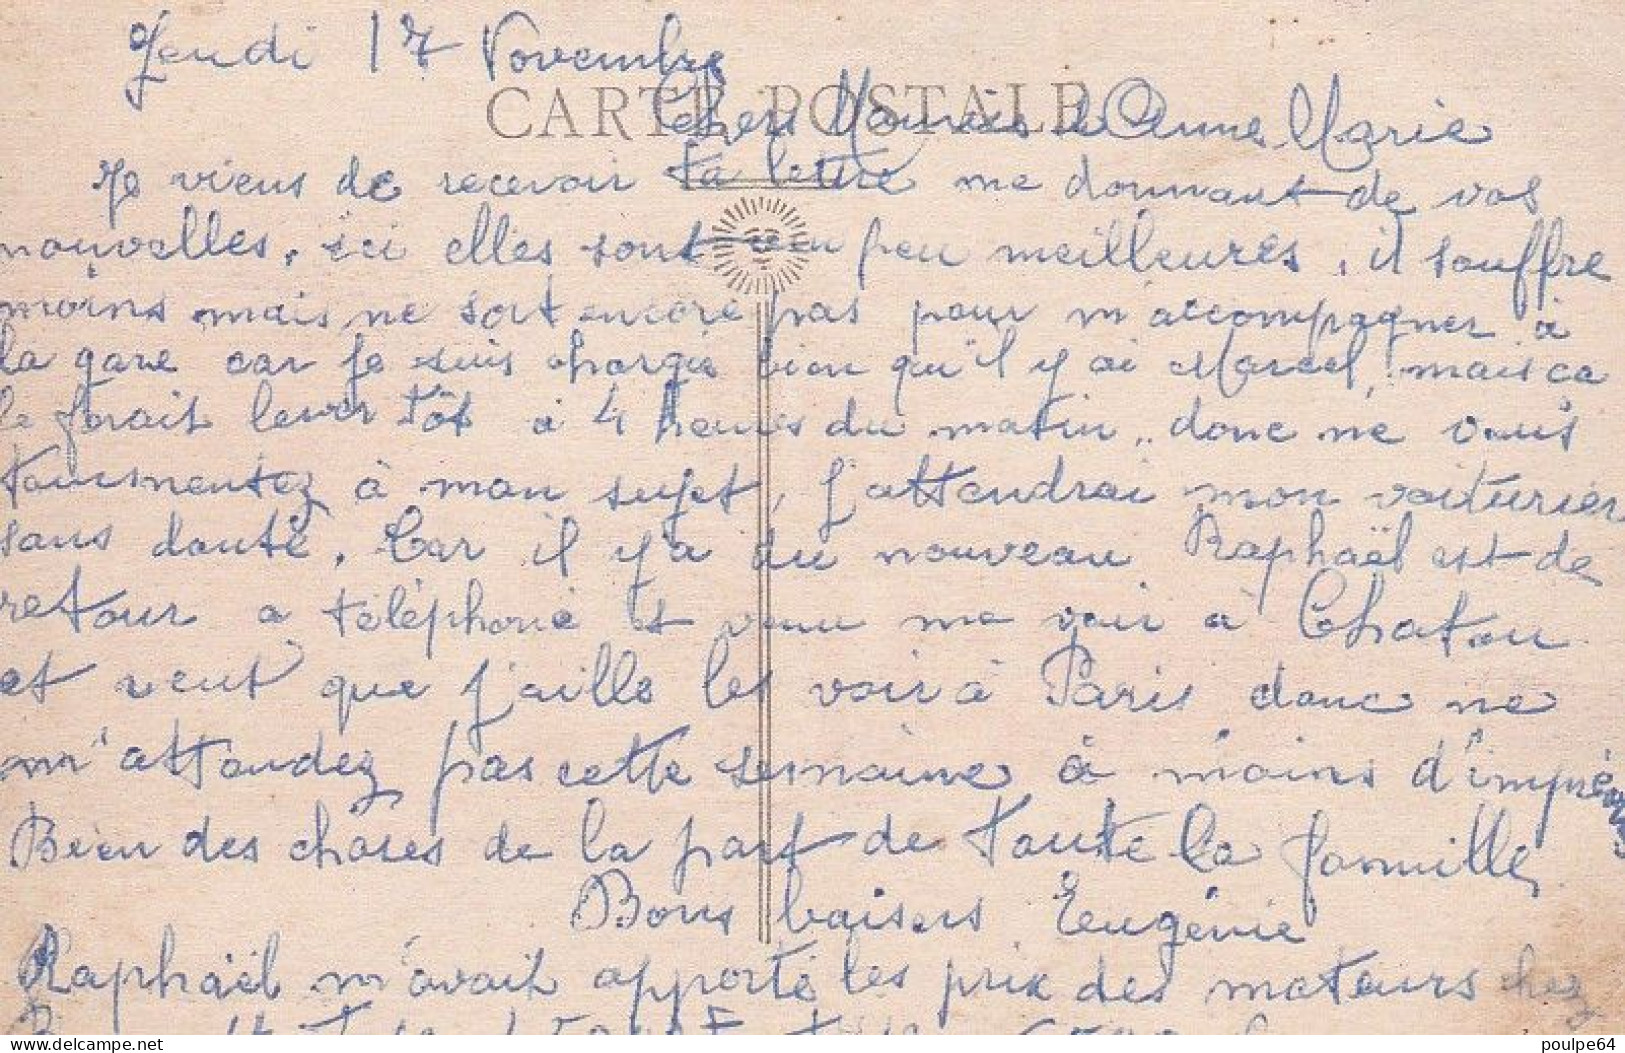 Jeudi 17 Novembre
CARTE POSTALE
Chers Maurice & Anne Marie
Je viens de recevoir ta lettre me donnant de vos
nouvelles, ici elles sont un peu meilleures, il souffre
moins mais ne sort encore pas pour m'accompagner à
la gare car je suis chargée bien qu'il y ai Marcel, mais ça
le ferait lever tôt à 4 heures du matin, donc ne vous
tourmentez à mon sujet, j'attendrai mon voiturier
sans doute. Car il y a du nouveau Raphaël est de
retour a téléphoné et venu me voir à Chatou
et veut que j'aille les voir à Paris donc ne
m'attendez pas cette semaine à moins d'imprévu
Bien des choses de la part de toute la famille
Bons baisers Eugénie
Raphaël m'avait apporté les prix des moteurs chez
www.delcampe.net
poulpe64